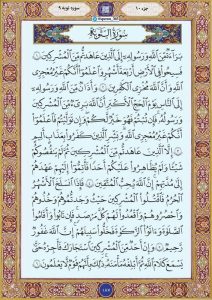 جزء ۱۰
سوره توبه ۹
سُورَةُ التَّوْبَةِ
بَرَاءَةٌ مِنَ اللَّهِ وَرَسُولِهِ إِلَى الَّذِينَ عَاهَدْتُمْ مِنَ الْمُشْرِكِينَ ۝١
فَسِيحُوا فِي الْأَرْضِ أَرْبَعَةَ أَشْهُرٍ وَاعْلَمُوا أَنَّكُمْ غَيْرُ مُعْجِزِي
اللَّهِ وَأَنَّ اللَّهَ مُخْزِي الْكَافِرِينَ ۝٢ وَأَذَانٌ مِنَ اللَّهِ وَرَسُولِهِ
إِلَى النَّاسِ يَوْمَ الْحَجِّ الْأَكْبَرِ أَنَّ اللَّهَ بَرِيءٌ مِنَ الْمُشْرِكِينَ
وَرَسُولُهُ فَإِنْ تُبْتُمْ فَهُوَ خَيْرٌ لَكُمْ وَإِنْ تَوَلَّيْتُمْ فَاعْلَمُوا
أَنَّكُمْ غَيْرُ مُعْجِزِي اللَّهِ وَبَشِّرِ الَّذِينَ كَفَرُوا بِعَذَابٍ أَلِيمٍ
۝٣ إِلَّا الَّذِينَ عَاهَدْتُمْ مِنَ الْمُشْرِكِينَ ثُمَّ لَمْ يَنْقُصُوكُمْ
شَيْئًا وَلَمْ يُظَاهِرُوا عَلَيْكُمْ أَحَدًا فَأَتِمُّوا إِلَيْهِمْ عَهْدَهُمْ
إِلَى مُدَّتِهِمْ إِنَّ اللَّهَ يُحِبُّ الْمُتَّقِينَ ۝٤ فَإِذَا انْسَلَخَ الْأَشْهُرُ
الْحُرُمُ فَاقْتُلُوا الْمُشْرِكِينَ حَيْثُ وَجَدْتُمُوهُمْ وَخُذُوهُمْ
وَاحْصُرُوهُمْ وَاقْعُدُوا لَهُمْ كُلَّ مَرْصَدٍ فَإِنْ تَابُوا وَأَقَامُوا
الصَّلَاةَ وَآتَوُا الزَّكَاةَ فَخَلُّوا سَبِيلَهُمْ إِنَّ اللَّهَ غَفُورٌ
رَحِيمٌ ۝٥ وَإِنْ أَحَدٌ مِنَ الْمُشْرِكِينَ اسْتَجَارَكَ فَأَجِرْهُ حَتَّى
يَسْمَعَ كَلَامَ اللَّهِ ثُمَّ أَبْلِغْهُ مَأْمَنَهُ ذَلِكَ بِأَنَّهُمْ قَوْمٌ لَا يَعْلَمُونَ ۝٦
۱۸۷